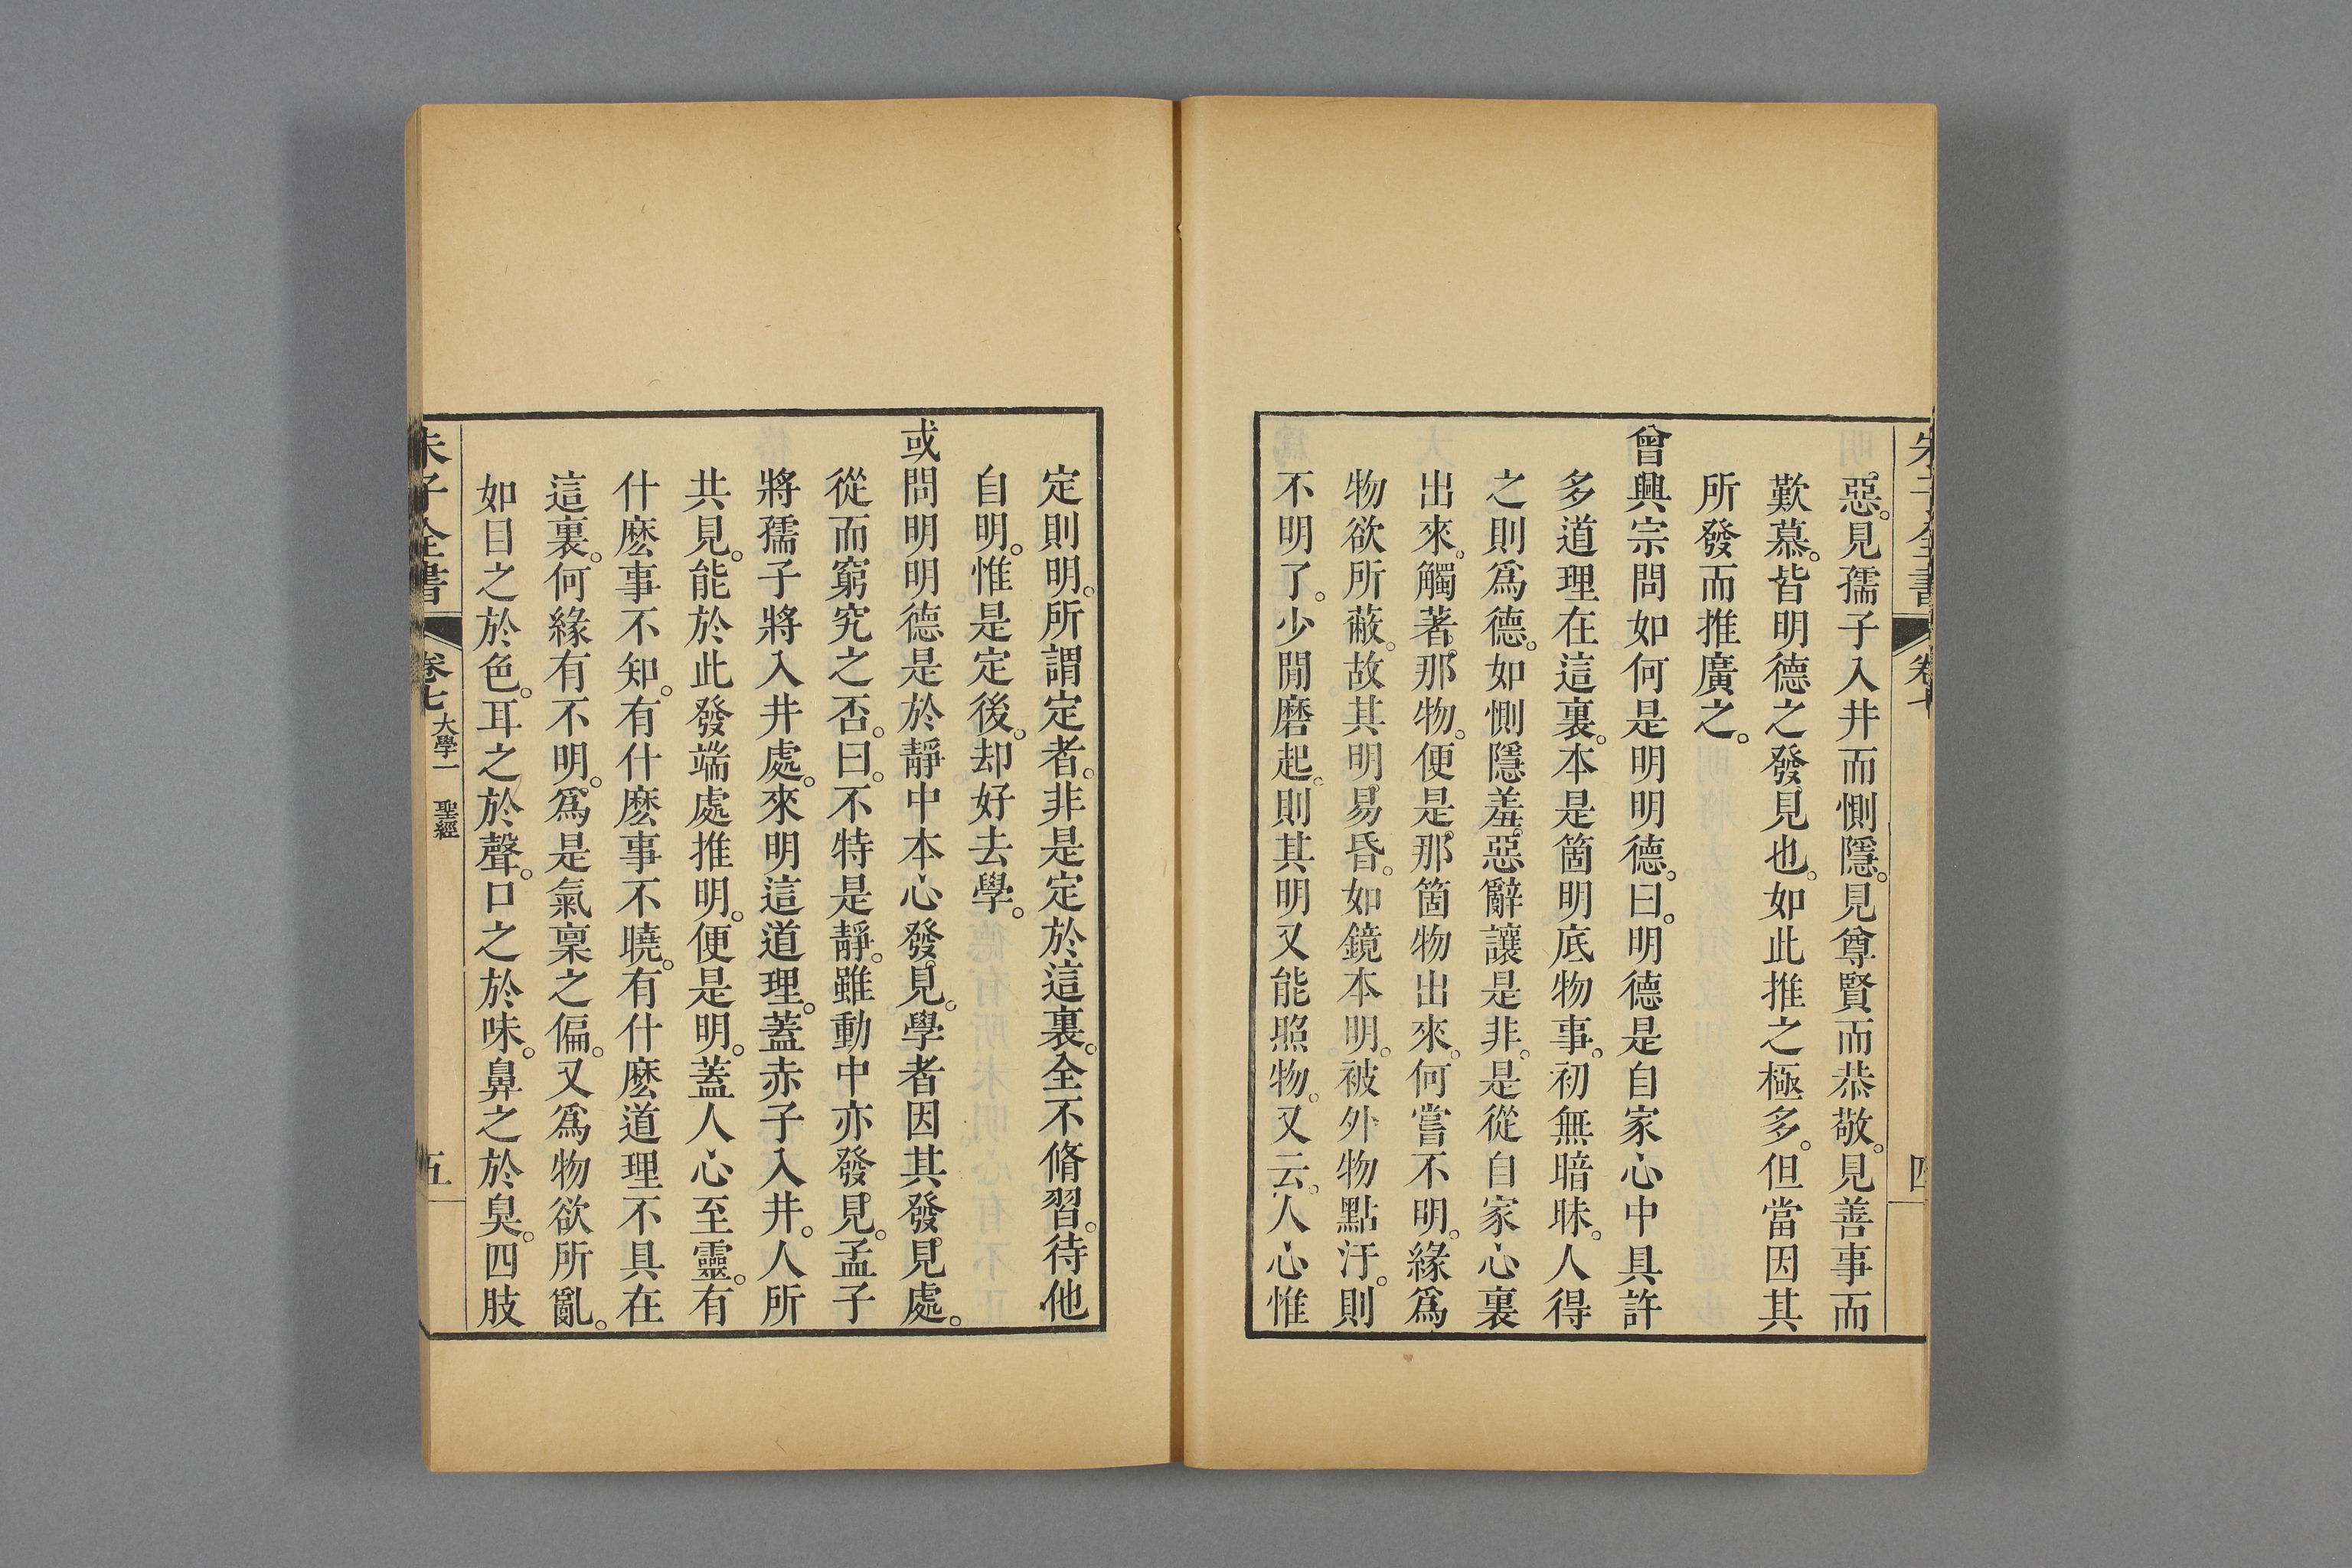 朱子全書 卷七 四
惡。見孺子入井而惻隱。見尊賢而恭敬。見善事而
歎慕。皆明德之發見也。如此推之極多。但當因其
所發而推廣之。
曾興宗問如何是明明德。曰。明德是自家心中具許
多道理在這裏。本是箇明底物事。初無暗昧。人得
之則爲德。如惻隱羞惡辭讓是非。是從自家心裏
出來。觸著那物。便是那箇物出來。何嘗不明。緣爲
物欲所蔽。故其明易昏。如鏡本明。被外物點汙。則
不明了。少閒磨起。則其明又能照物。又云。人心惟
定則明。所謂定者。非是定於這裏。全不脩習。待他
自明。惟是定後。却好去學。
或問明明德是於靜中本心發見。學者因其發見處。
從而窮究之否。曰。不特是靜。雖動中亦發見。孟子
將孺子將入井處。來明這道理。蓋赤子入井。人所
共見。能於此發端處推明。便是明。蓋人心至靈。有
什麽事不知。有什麽事不曉。有什麽道理不具在
這裏。何緣有不明。爲是氣稟之偏。又爲物欲所亂。
如目之於色。耳之於聲。口之於味。鼻之於臭。四肢
朱子全書 卷七 大學一 聖經 五